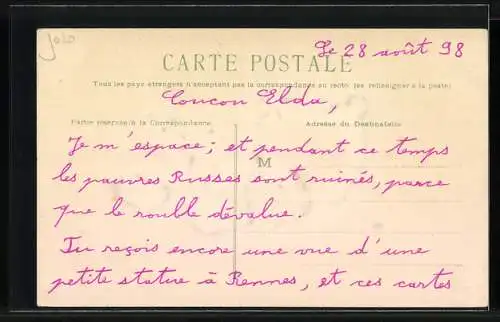 Le 28 août 98
CARTE POSTALE
Tous les pays étrangers n'acceptant pas la correspondance au recto (se renseigner à la poste)
Coucou Elda,
Partie réservée à la Correspondance
Adresse du Destinataire
Je m'espace ; et pendant ce temps
M
les pauvres Russes sont ruinés, parce
que le rouble dévalue.
Tu reçois encore une vue d'une
petite statue à Rennes, et ces cartes